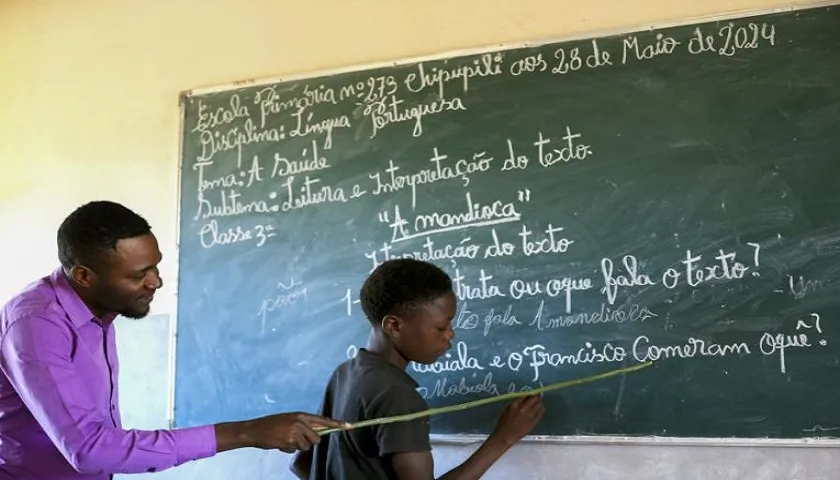 Escola Primária nº 273 Chipupili aos 28 de Maio de 2024
Disciplina: Língua Portuguesa
Tema: A Saúde
Subtema: Leitura e Interpretação do texto.
Classe 3ª
"A mandioca"
Interpretação do texto
1- trata ou oque fala o texto?
fala A mandioca
e o Francisco Comeram oquê?